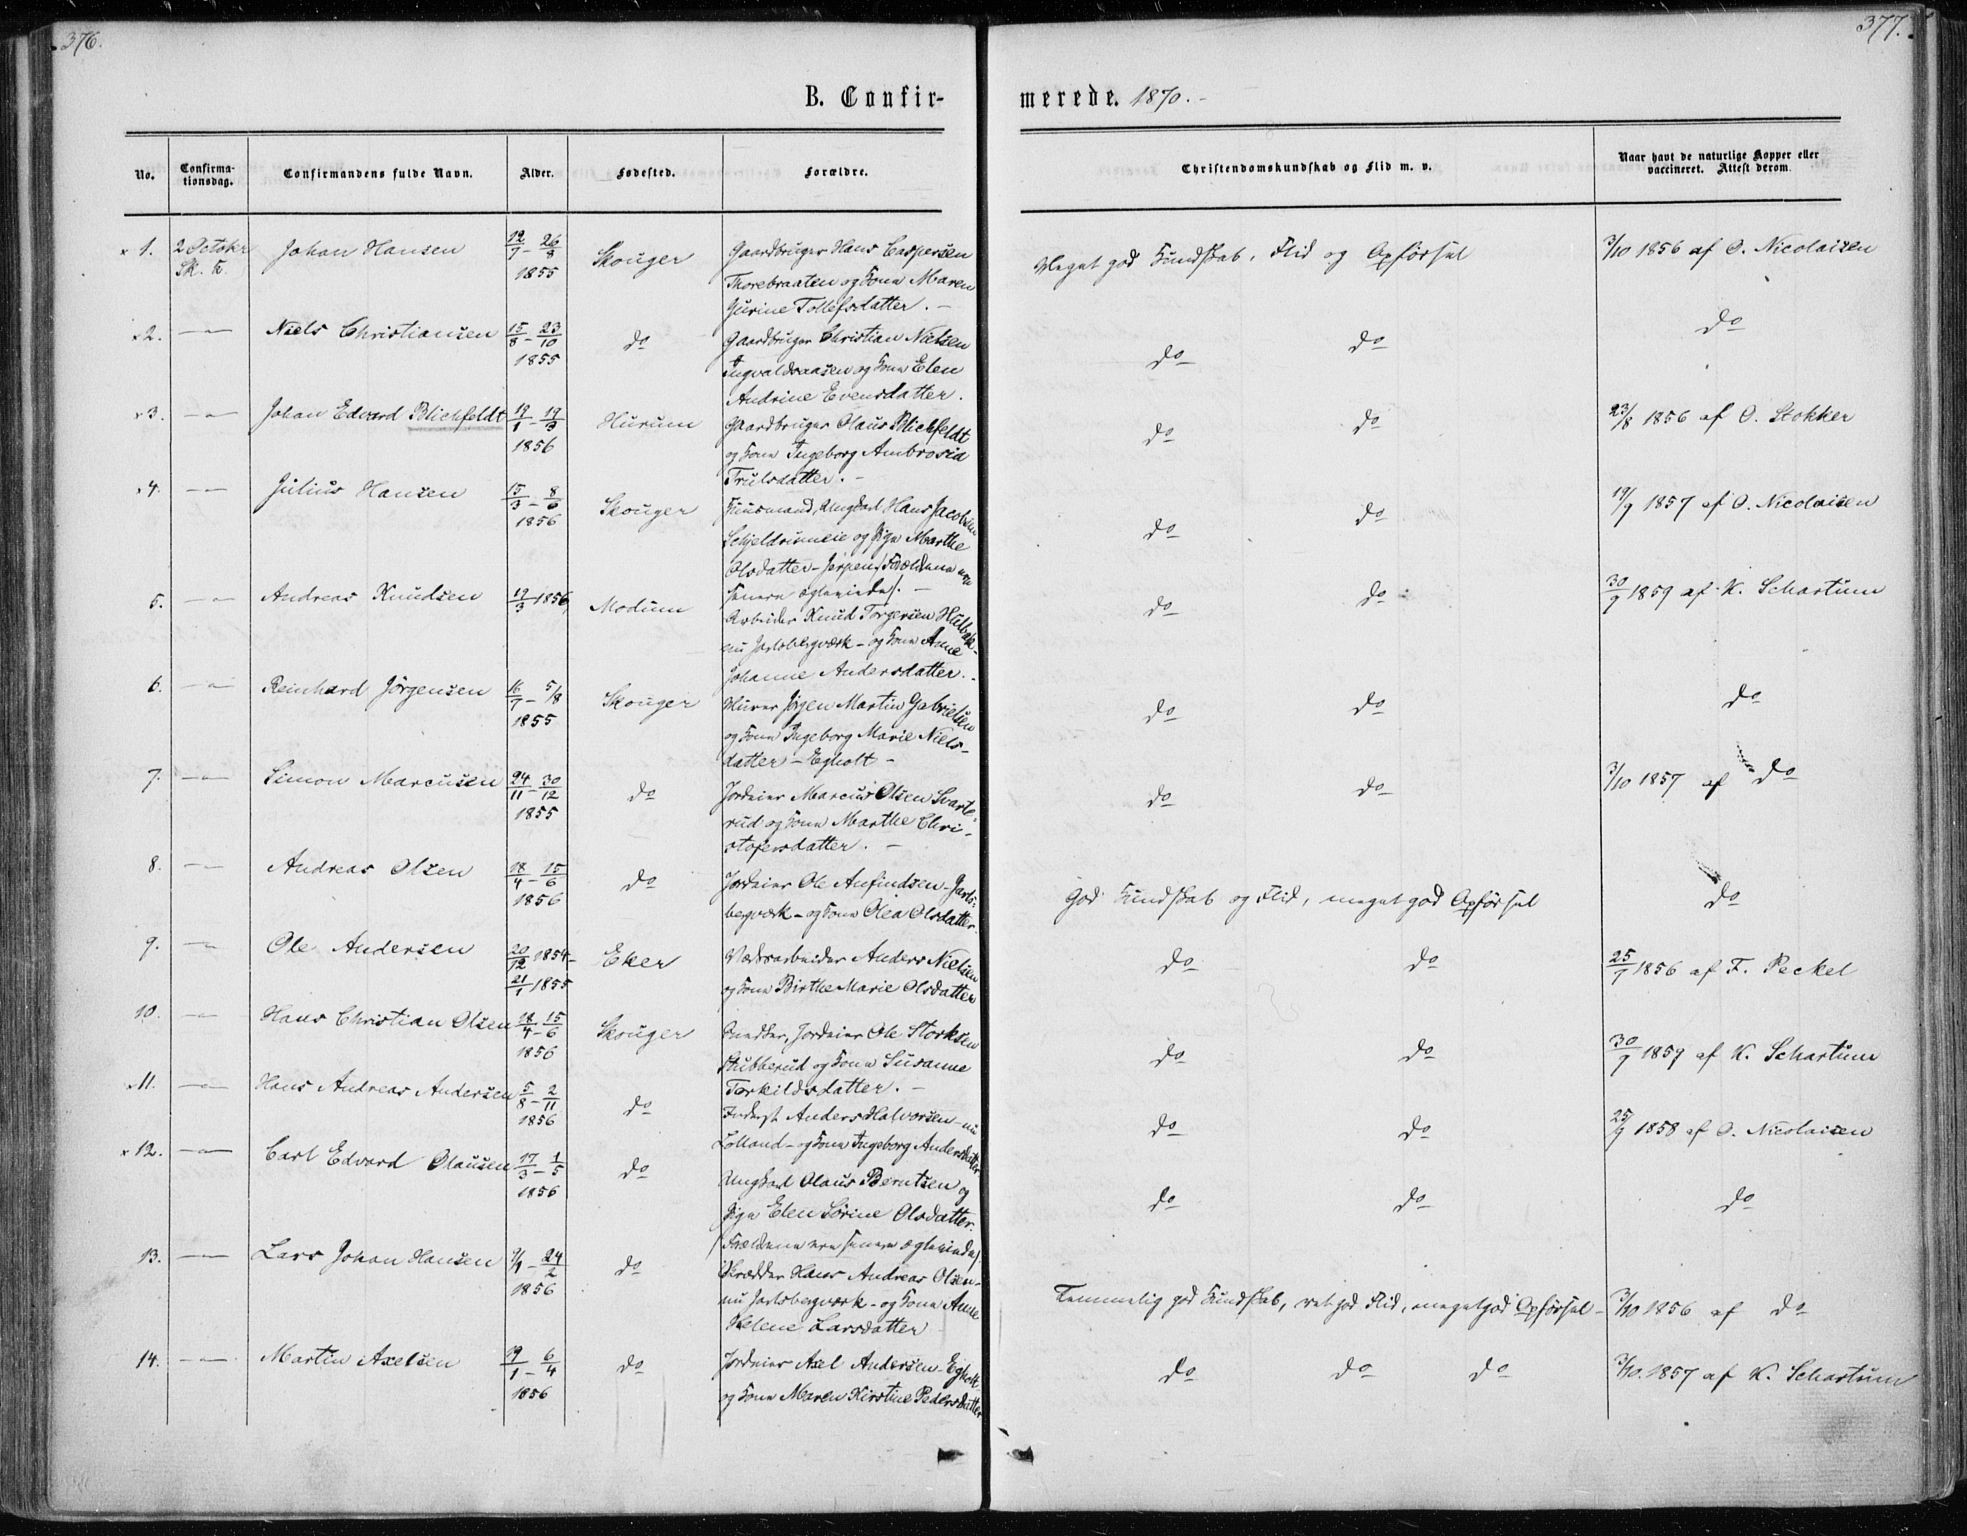 376.
377.
B. Confir-
merede. 1870.-
No.
Confirma-
tionsdag.
Confirmandens fulde Navn.
Alder.
Fødested.
Forældre.
Christendomskundskab og Flid m. v.
Naar havt de naturlige Kopper eller
vaccineret. Attest derom.
x 1. 2 October Johan Hansen 12/7 - 26/8 Skouger Gaardbruger Hans Caspersen Meget god Kundskab, Flid og Opførsel 3/10 1856 af O. Nicolaisen
Sk. K. 1855 Thorebraaten og Kone Maren
Gurine Tollefsdatter. -
x2. -"- Niels Christiansen 15/8 - 23/10 do Gaardbruger Christian Nielsen do do do
1855 Ingvaldsaasen og Kone Elen
Andrine Evensdatter.
x3. -"- Johan Edvard Blichfeldt 12/1 - 19/3 Hurum Gaardbruger Olaus Blichfeldt do do 23/8 1856 af O. Stokker
1856 og Kone Ingeborg Ambrosia
Trulsdatter. -
x4. -"- Julius Hansen 15/3 - 8/6 Skouger Huusmand, Ungkarl Hans Jacobsen do do 19/9 1857 af O. Nicolaisen
1856 og Pige Marthe
Olsdatter - Jerpen (Forældrene ere
senere ægteviede). -
5. -"- Andreas Knudsen 12/3 1856 Modum Arbeider Knud Torgersen do do 30/9 1859 af K. Schartum
nu Jarlsbergværk - og Kone Anne
Johanne Andersdatter. -
6. -"- Reinhard Jörgensen 16/7 - 5/8 Skouger Murer Jörgen Martin Gabrielsen do do do
1855 og Kone Ingeborg Marie Niels-
datter - Egholt -
7. -"- Simon Marcusen 24/11 - 30/12 do Jordeier Marcus Olsen Svarte- do do 3/10 1857 af do
1855 rud og Kone Marthe Chri-
stofersdatter. -
8. -"- Andreas Olsen 18/4 - 15/6 do Jordeier Ole Anfindsen - Jarls- God Kundskab og Flid, meget god Opførsel do
1856 bergværk - og Kone Olea Olsdatter.
9. -"- Ole Andersen 20/12 1854- Eker Værksarbeider Anders Nielsen do do 25/9 1856 af F. Peckel
21/1 1855 og Kone Birthe Marie Olsdatter
10. -"- Hans Christian Olsen 18/4 - 15/6 Skouger Jordeier Ole Storksen do do 30/9 1859 af K. Schartum
1856 Stubberud og Kone Susanne
Torkildsdatter. -
x11. -"- Hans Andreas Andersen 5/8 - 2/11 do Inderst Anders Halvorsen - nu do do 25/9 1858 af O. Nicolaisen
1856 Lolland - og Kone Ingeborg Andersdatter
x 12. -"- Carl Edvard Olausen 17/3 - 1/5 do Ungkarl Olaus Berntsen og do do do
1856 Pige Elen Sörine Olsdatter.
(Forældrene ere senere ægteviede)
13. -"- Lars Johan Hansen 1/1 - 24/2 do Skrædder Hans Andreas Olsen - Temmelig god Kundskab, ret god Flid, meget god Opførsel - 3/10 1856 af do
1856 nu Jarlsbergværk - og Kone Anne
Helene Larsdatter
14. -"- Martin Axelsen 19/1 - 6/4 do Jordeier Axel Andersen Egholt do do do 3/10 1857 af K. Schartum
1856 og Kone Maren Kirstine Pedersdatter